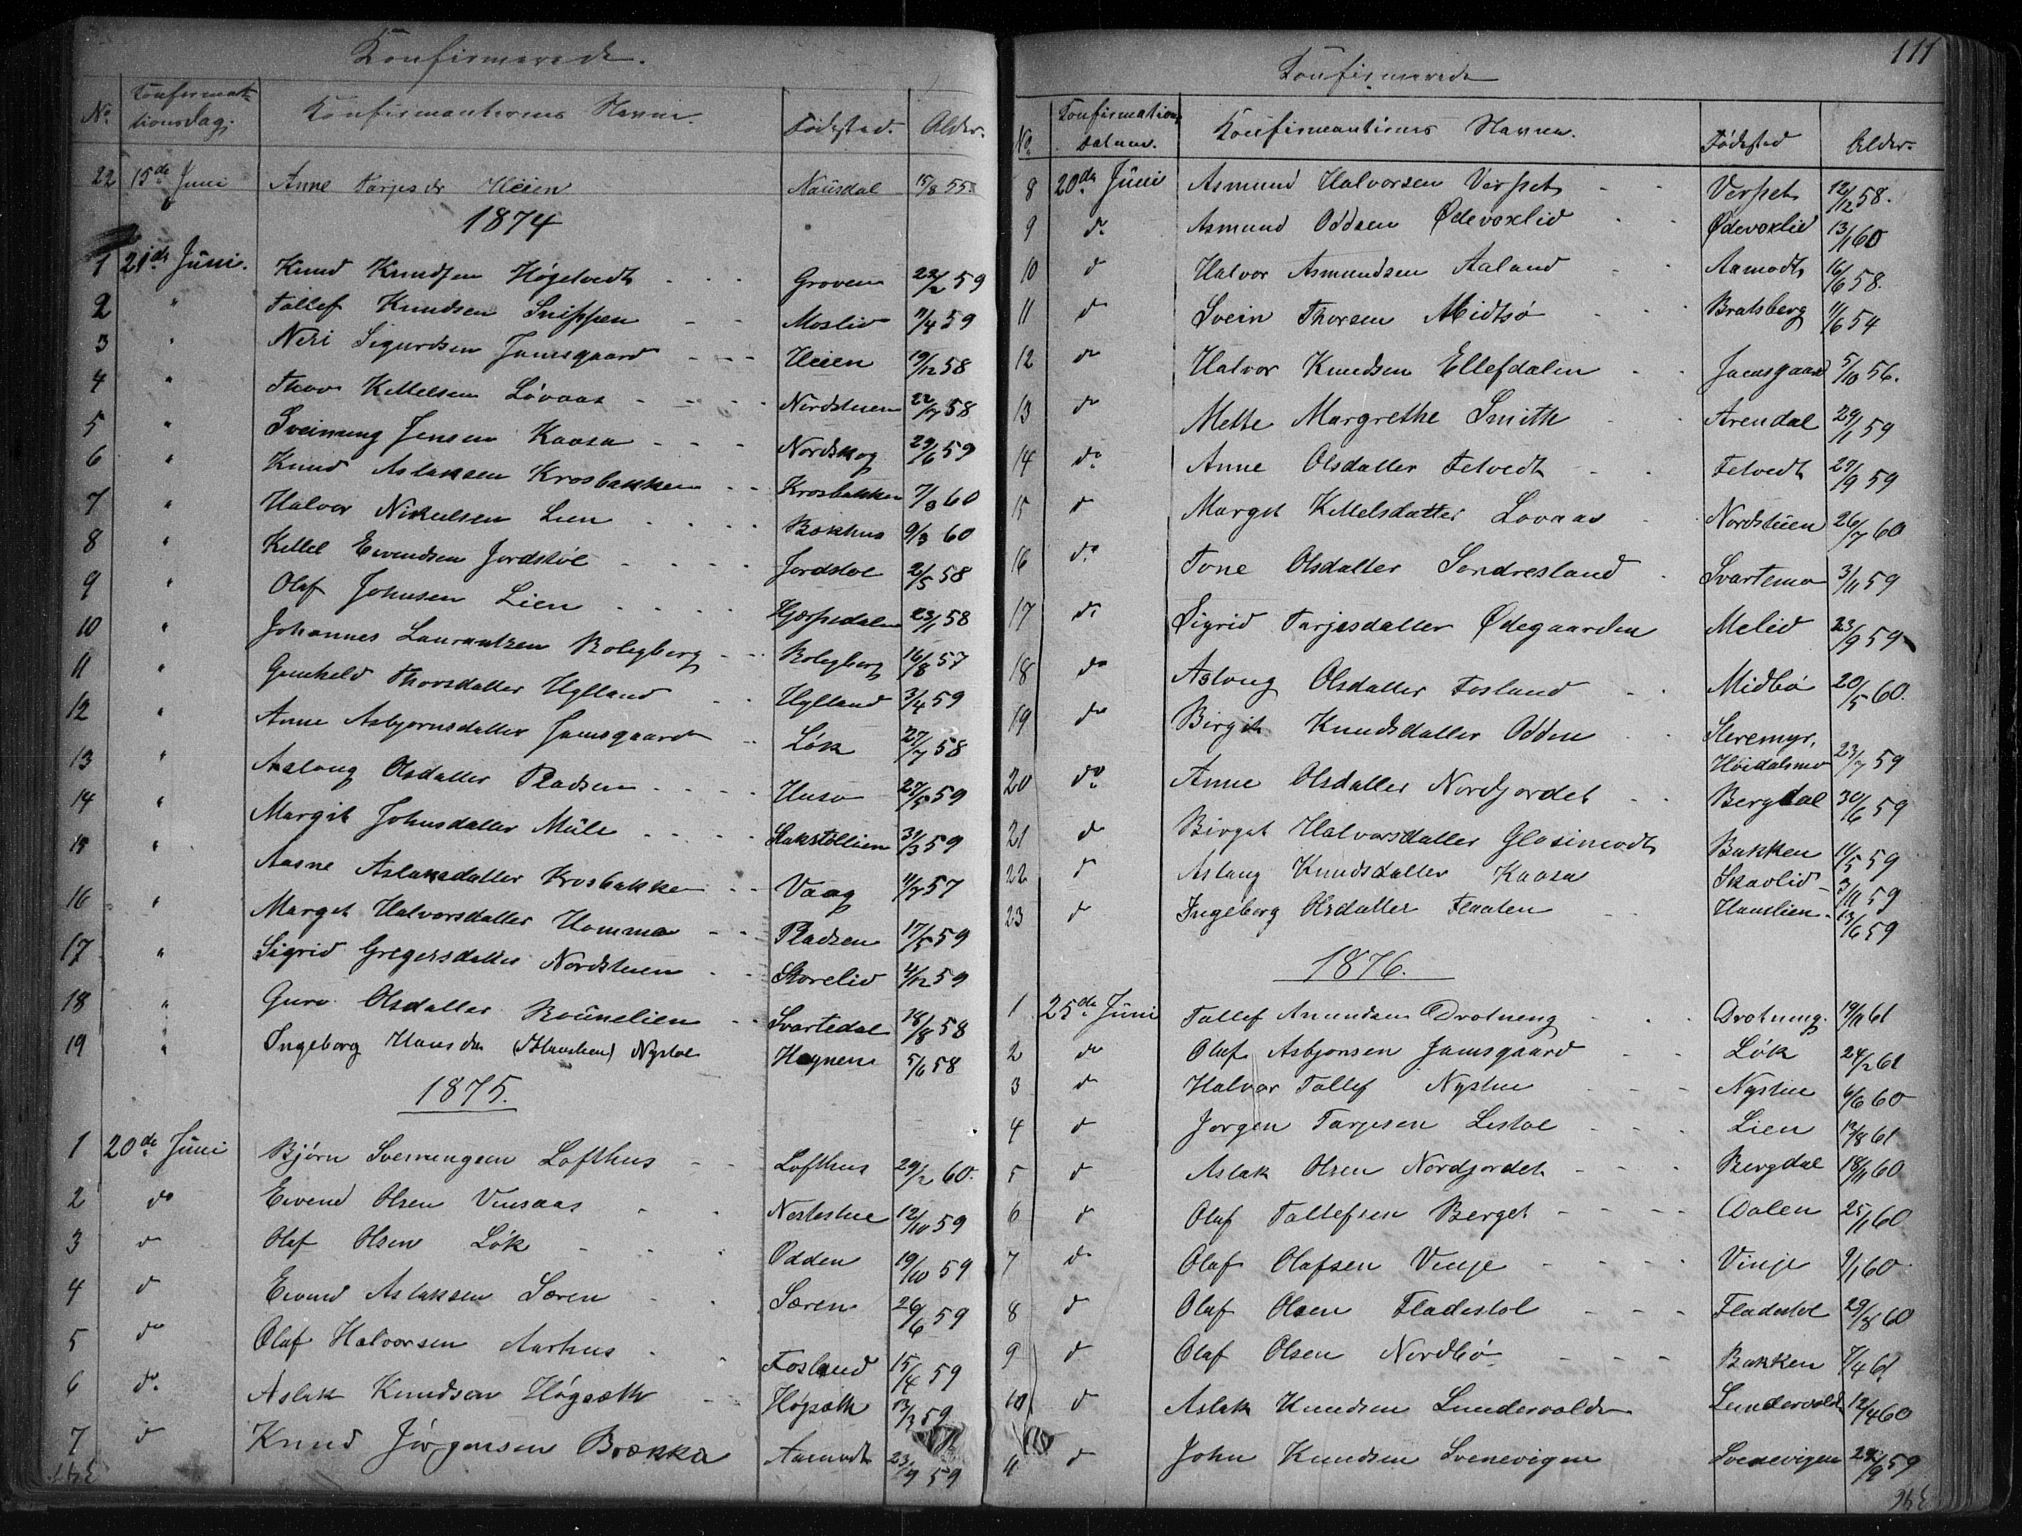 Konfirmerede.
No. Konfirmationsdag. Konfirmanternes Navne. Fødested. Alder.
22 15de Juni Anne Tarjesdr Heien Nausdal 15/8 55
1874
1 21de Juni. Knud Knudsen Høgetvedt Groven 22/2 59
2 " Tallef Knudsen Snippen Moslid 11/4 59
3 " Neri Sigurdsen Jamsgaard Heien 19/12 58
4 " Thor Kittelsen Løvaas Nordstuen 22/7 58
5 " Sveinung Jensen Kaasa Nordskog 29/6 59
6 " Knud Aslaksen Krosbakken Krosbakken 7/3 60
7 " Halvor Nikulsen Lien Bakhus 9/3 60
8 " Kittel Eivendsen Jordstøl Jordstøl 2/5 58
9 " Olaf Johnsen Lien Hjerpedalen 23/1 58
10 " Johannes Laurantzen Bolegberg Bolegberg 16/8 57
11 " Gunhild Thorsdatter Hylland Hylland 3/4 59
12 " Anne Asbjørnsdatter Jamsgaard Løk 27/7 58
13 " Aslaug Olsdatter Pladsen Huso 27/5 59
14 " Margit Johnsdatter Mule 31/3 59
15 " Aasne Aslaksdatter Krosbakken Vaag 11/7 57
16 " Margit Halvorsdatter Homme Pladsen 17/5 59
17 " Sigrid Gregersdatter Nordstuen Storelid 4/12 59
18 " Guro Olsdatter Bounelien Svartedal 18/8 58
19 " Ingeborg Hansda () Nystøl 5/6 58
1875.
1 20de Juni Bjørn Sveinungsen Lofthus Lofthus 29/2 60.
2 do Eivend Olsen Vinsaas Nordstue 12/10 59
3 d Olaf Olsen Løk Odden 19/10 59
4 d Eivend Aslaksen Særen Særen 26/6 59
5 do Olaf Halvorsen Aarhus Fosland 15/4 59
6 do Aslak Knudsen Høgsæth Høgsæth 13/3 59
7 d Knud Jørgensen Brækka Aamodt 23/9 59
111
Konfirmerede
No Konfirmationsdatum. Konfirmanternes Navne. Fødested Alder.
8 20de Juni Asmund Halvorsen Verpet Verpet 12/12 58.
9 do Asmund Oddsen Ødevoxlid Ødevoxlid 13/1 60
10 d Halvor Asmundsen Aaland Aamodt 16/6 58.
11 d Svein Thorsen Midtbø Bratsberg 11/6 54
12 do Halvor Knudsen Ellefdalen Jamsgaard 5/10 56.
13 do Mette Margrethe Smith Arendal 29/1 59
14 do Anne Olsdatter Fetvedt Fetvedt 27/9 59
15 d Margit Kittelsdatter Lovaas Nordstuen 26/7 60
16 do Tone Olsdatter Sondresland Svartemo 3/11 59
17 do Sigrid Tarjesdatter Ødegaarden Melid 23/9 59
18 do Aslaug Olsdatter Fosland Midbø 20/5 60.
19 do Birgit Knudsdatter Odden Høidalsmo 23/7 59
20 do Anne Olsdatter Nordjordet Bergdal 30/6 59
21 do Birgit Halvorsdatter Glosimodt Bakken 11/5 59
22 d Aslaug Knudsdatter Kaasa Skaolid 3/11 59
23 d Ingeborg Olsdatter Flaaten Hanslien 13/6 59
1876.
1 25de Juni Tallef Amundsen Drotning Drotning. 19/11 61
2 do Olaf Asbjørnsen Jamsgaard Løk 24/2 61
3 d Halvor Tallef Nystue Nystue 6/6 60
4 d Jørgen Tarjesen Lestøl Lien 12/8 61
5 d Aslak Olsen Nordjordet Bergdal 18/11 60
6 d Olaf Tallefsen Berget Dalen 25/1 60
7 do Olaf Olafsen Vinje Vinje 9/1 60
8 d Olaf Olsen Fladestøl Fladestøl 29/8 60
9 d Olaf Olsen Nordbø Bakken 7/4 61
10 d Aslak Knudsen Lundevalde 12/4 60
11 d John Knudsen Svenevigen Svenevigen 24/9 59